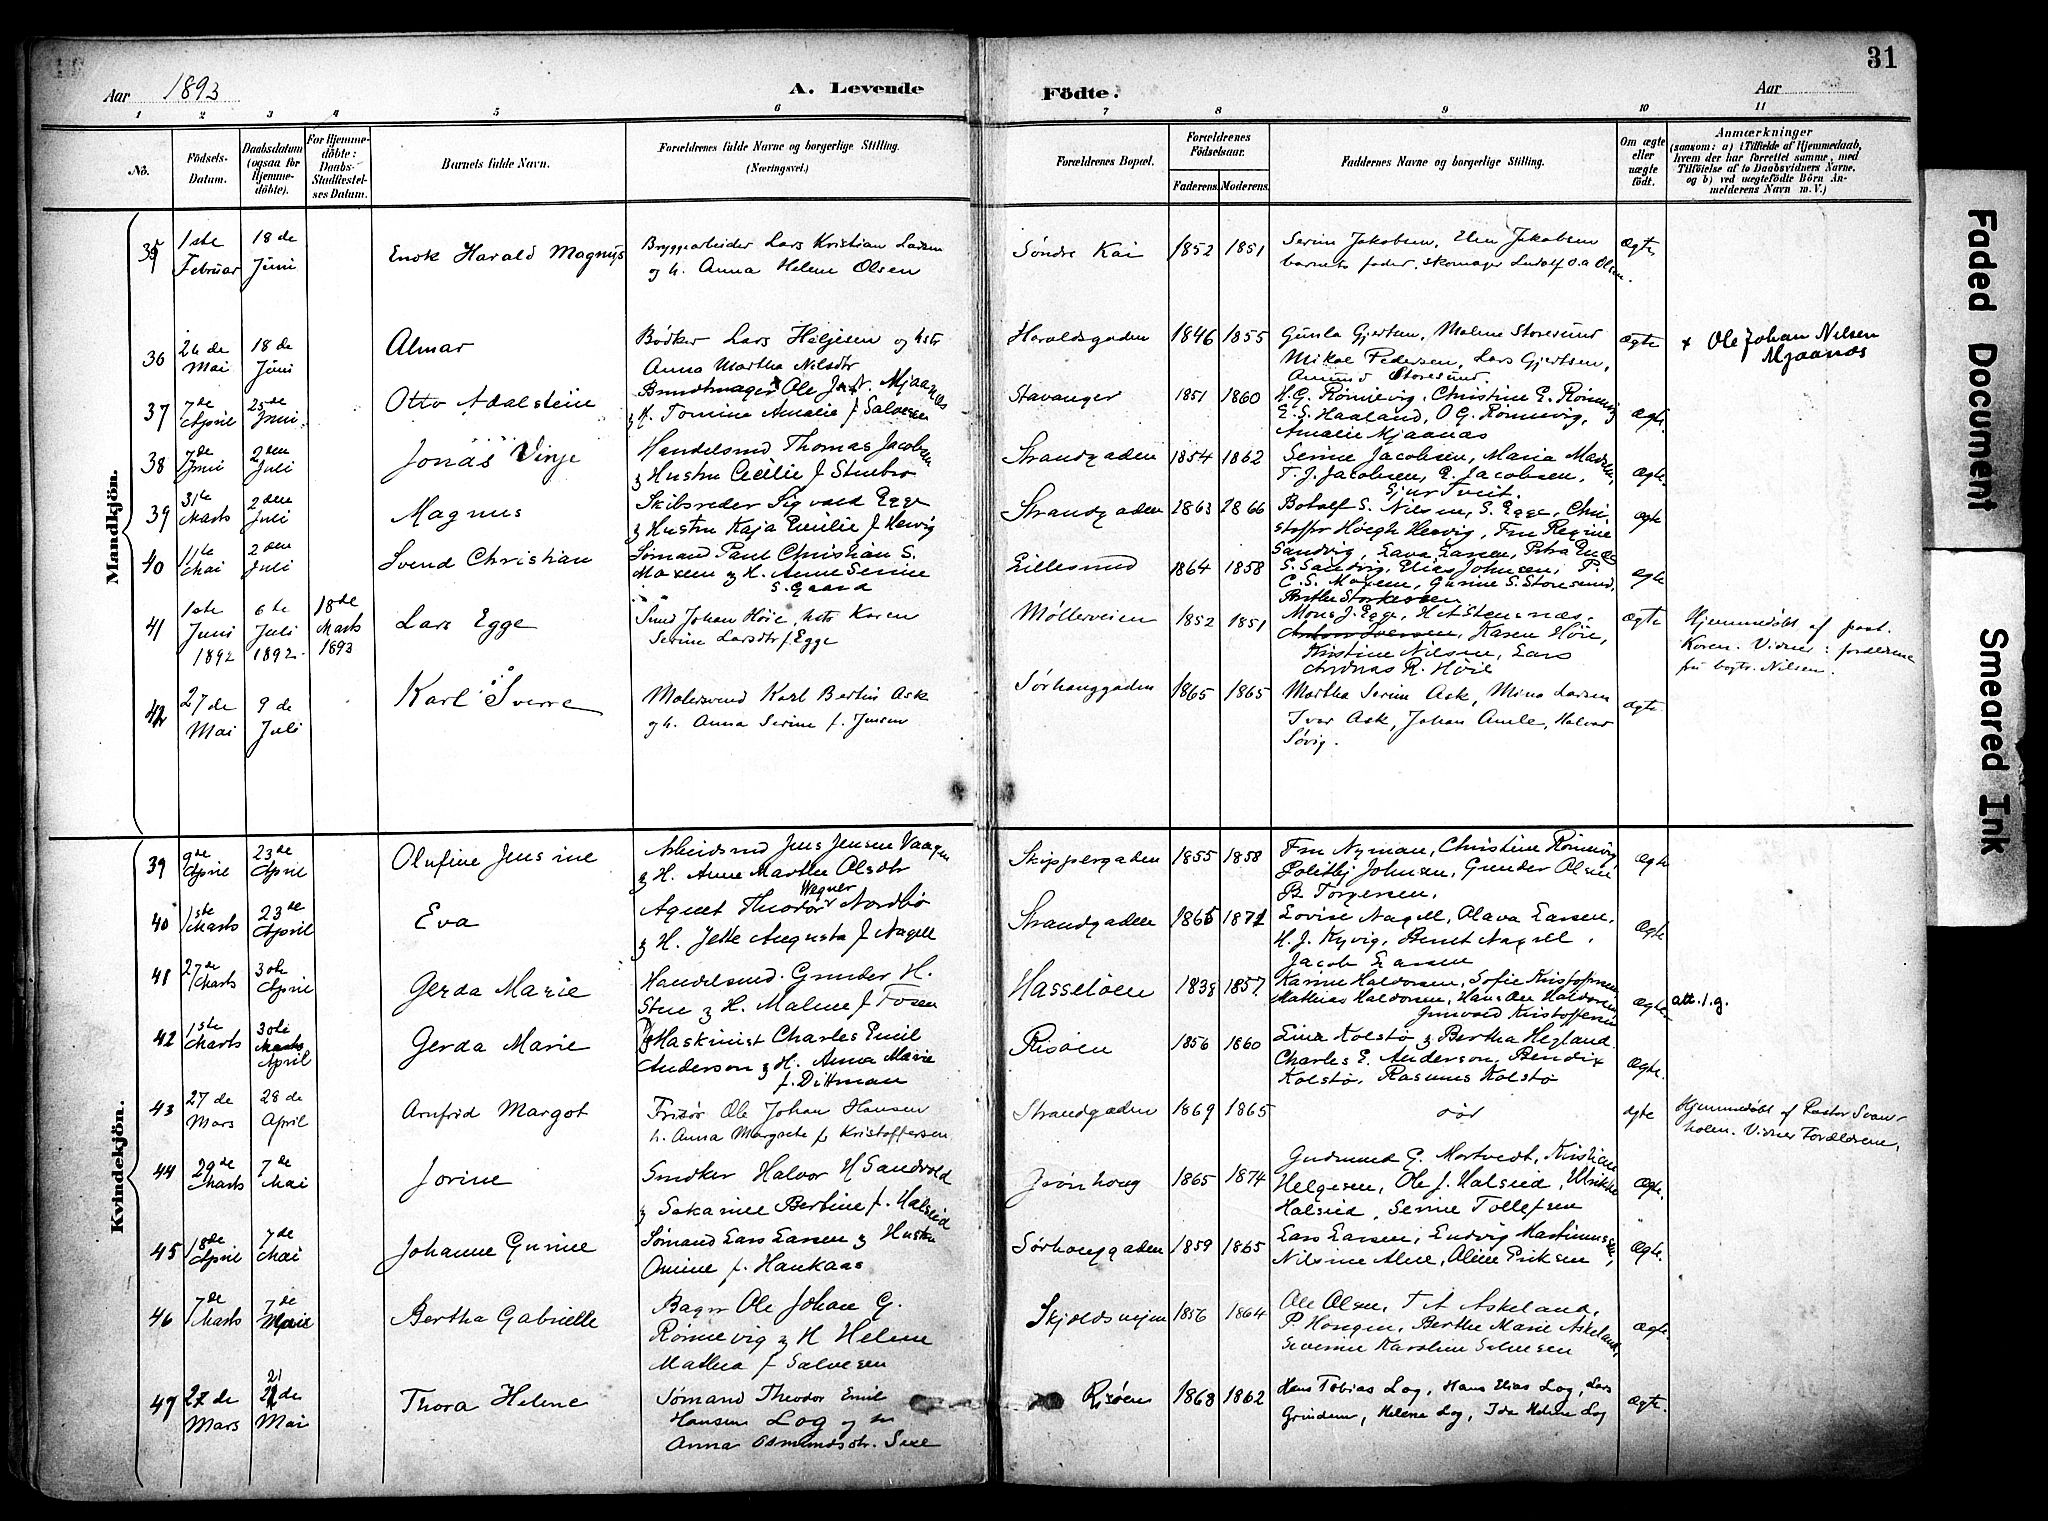 31
Aar 1893
A. Levende
Födte.
Aar
1 2 3 4 5 6 7 8 9 10 11
No.
Födsels-Datum.
Daabsdatum (ogsaa for Hjemme-döbte).
For Hjemme-döbte: Daabs-Stadfæstel-ses Datum.
Barnets fulde Navn.
Forældrenes fulde Navne og borgerlige Stilling. (Næringsvei.)
Forældrenes Bopæl.
Forældrenes Födselsaar.
Faderens. Moderens.
Faddernes Navne og borgerlige Stilling.
Om ægte eller uægte födt.
Anmærkninger
(saasom: a) i Tilfælde af Hjemmedaab,
hvem der har forrettet samme, med
Tilföielse af to Daabsvidners Navne,
og b) ved uægtefödte Börn An-
melderens Navn m. V.)
Mandkjön.
35 1ste Februar 18 de Juni Enok Harald Magnus
Bryggearbeider Lars Kristian Larsen
og h. Anna Helene Olsen
Søndre Kai 1852 1851
Serine Jakobsen, Elen Jakobsen
barnets fader, skomager Ludolf O.A. Olsen.
Ægte
36 26 de Mai 18 de Juni Almar
Bødker Lars Helgesen og hstr
Anna Martha Nilsdtr
Haraldsgaden 1846 1855
Gunla Gjertsen, Malene Storesund
Mikal Pedersen, Lars Gjertsen,
Amund Storesund.
Ægte
x Ole Johan Nilsen
Mjaanæs
37 7de April 25de Juni. Otto Adalstein
Buntmager Ole Mjaanæs
& H. Tomine Amalie f. Salvesen
Stavanger 1851 1860
H. G. Rönnevig, Christine E. Rönnevig
E. S. Haaland, O G. Rönnevig,
Amalie Mjaanæs
Ægte.
38 7de Juni 2den Juli Jonas Vinje
Handelsmd Thomas Jacobsen
& Hustru Cecilie f. Stuebro
Strandgaden 1854 1862
Serine Jacobsen, Maria Madsen,
T. J. Jacobsen, E. Jacobsen,
Gjur Tveit.
Ægte.
39 31te Marts 2den Juli Magnus
Skibsreder Sigvald Egge
& Hustru Kaja Emilie f. Hervig
Strandgaden 2863 2866
Botolf S. Nilsen, S. Egge, Chri-
stoffer Höegh Hervig, Fru Regine
Sandvig, Lava Larsen, Petra
Ægte
40 11te Mai 2den Juli Svend Christian
Sömand Paul Christian S.
& H. Anne Serine
S. Gaard
Lillesund 1864 1858
S. Sandvig, Elias Johnsen, P.
C. S. Gurine S. Storesund,
Ægte
41 1ste Juni 1892 6te Juli 1892. 18de Marts 1893 Lars Egge
Smed Johan Höie, hstr Karen
Serine Larsdtr f. Egge
Møllerveien 1852 1851
Mons J. Egge, H A Stensnæs,
Anton Iversen, Karen Höie,
Kristine Nilsen, Lars
Andreas R. Höie
Ægte
Hjemmedøbt af past.
Koren. Vidner: forældrene
Nilsen.
42 27 de Mai 9 de Juli Karl Sverre
Malersvend Karl Bertin Ask
og h. Anna Serine f. Jensen
Sørhauggaden 1865 1865
Martha Serine Ask, Mina Larsen
Ivar Ask, Johan Amle, Halvar
Sörig.
Ægte.
Kvindekjön.
39 9de April 23de April Olufine Jensine
Arbeidsmd Jens Jensen Vaagen
& H. Anne Marthe Olsdtr
Skippergaden 1855 1858
Fru Nyman, Christine Rönnevig
Politbj Johnsen, Gunder Olsen
Torgersen.
Ægte
40 1ste Marts 23de April Eva
Agent Theodor Wagner Nordbö
& H. Jette Augusta f. Nagell
Strandgaden 1865 1871
Lovise Nagell, Olava Larsen,
H. J. Kyvig, Bernt Nagell,
Jacob Larsen
Ægte
41 27de Marts 30te April Gerda Marie
Handelsmd. Gunder H.
Stue & H. Malene f. Fosen
Hasselöen 1838 1857.
Karine Haldorsen, Sofie Kristoffersen
Mathias Haldorsen, Hans Ole Haldorsen
Gunvald Kristoffersen
Ægte.
att. 1. g.
42 1ste Marts 30te Marts April Gerda Marie
Maskinist Charles Emil
Anderson & H. Anna Marie
f. Dittman
Risöen 1856 1860
Lina Kolstö & Bertha Hegland.
Charles E. Anderson, Bendix
Kolstö, Rasmus Kolstö
Ægte.
43 27 de Mars 28 de April Arnfrid Margot
Frisör Ole Johan Hansen
h. Anna Margrete f. Kristoffersen
Strandgaden 1869 1865
Ægte
Hjemmedøbt af Pastor Svan-
holm. Vidner Forældrene,
44 29de Marts 7de Mai Jorine
Snedker Halvor H Sandvold
& Sakamie Bertine f. Halseid
Grönhoug 1865 1874
Gudmund G. Mortvedt, Kristiane
Helgesen, Ole J. Halseid, Ulrikke
Halseid, Serine Tollefsen
Ægte.
45 18de April 7de Mai Johanne Gurine
Sömand Lars Larsen & Hustru
Oline f. Haukaas
Sörhouggaden 1859 1865
Lars Larsen, Ludvig Martinussen,
Nilsine Alne, Oline Eriksen
Ægte.
46 7de Marts 7de Mai Bertha Gabrielle
Bager Ole Johan G.
Rönnevig & H Helene
Mathea f Salvesen
Skjoldsveien 1856 1864
Ole Olsen, T A Askeland,
P. Hougen, Berthe Marie Askeland,
Severine Karoline Salvesen
Ægte.
47 27 de Mars 21 de Mai Thora Helene
Sömand Theodor Emil
Hansen Log og
Anna Osmundsdtr. Sæle
Risøen 1868 1862
Hans Tobias Log, Hans Elias Log, Lars
Grindem, Helene Log, Ida Helene Log
Ægte.
Faded Document
Smeared Ink